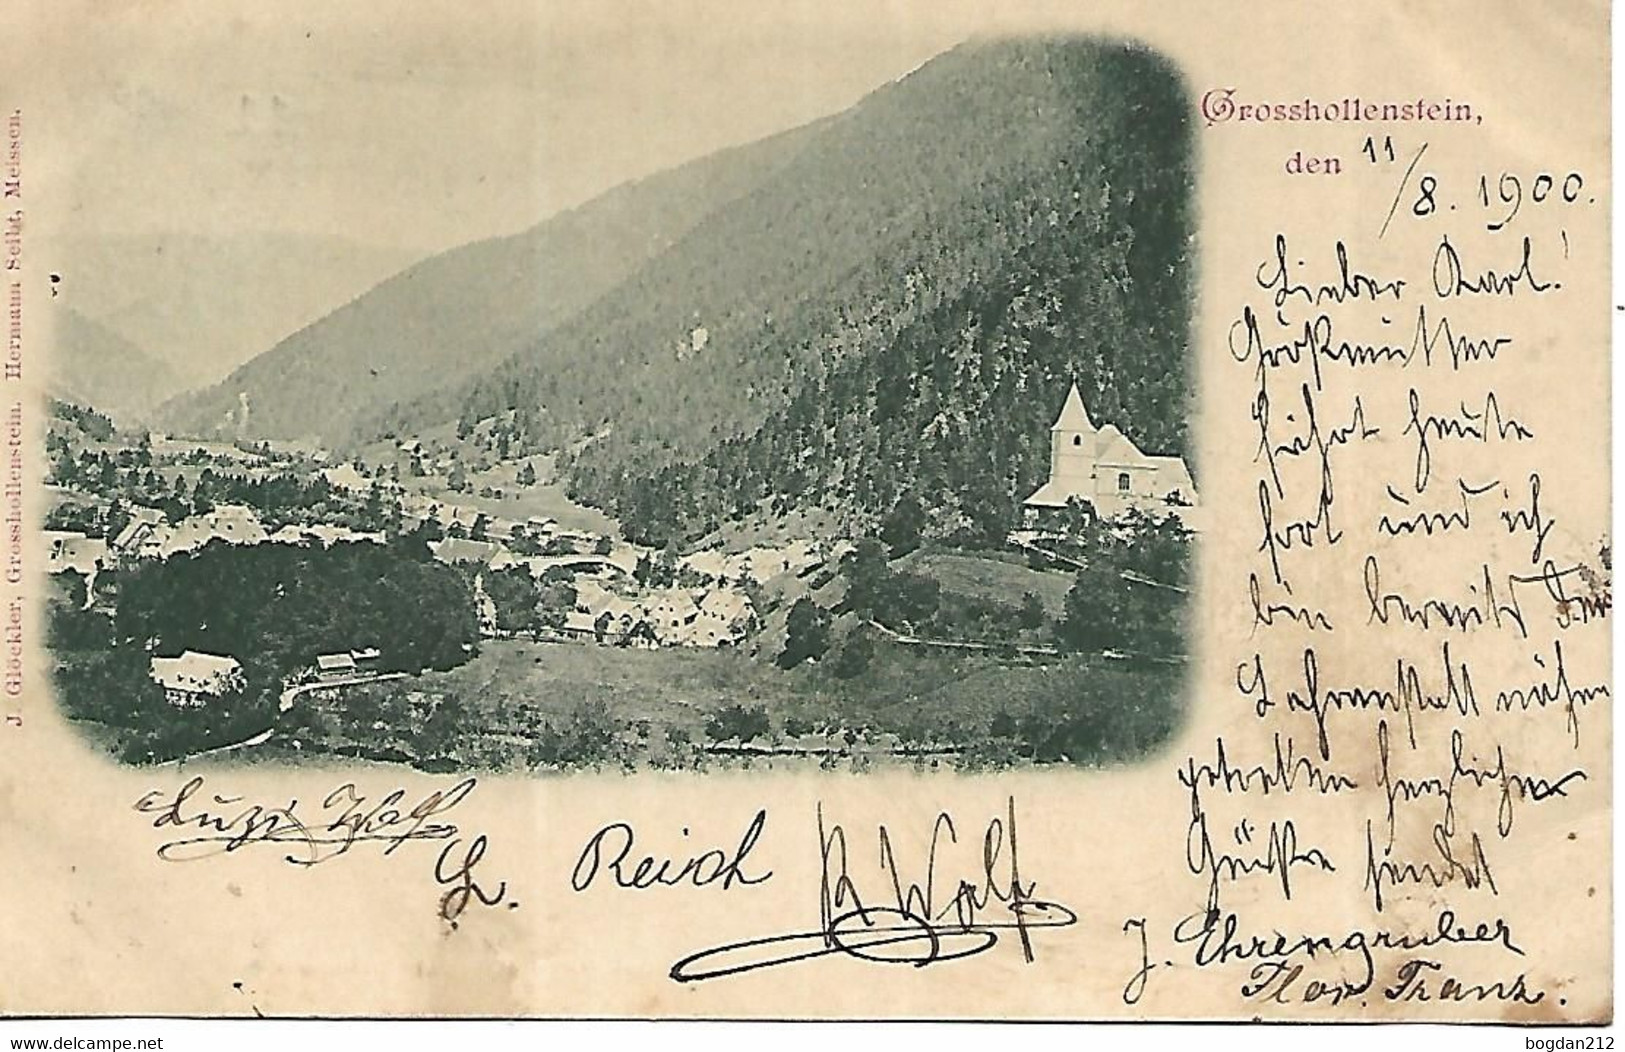 Grosshollenstein,
den 11/8. 1900.
Lieber Karl!
Großmutter
fährt heute
fort und ich
bin bereits der
Lehranstalt näher
getreten herzlichen
Grüsse sendet
J. Ehrengruber
Flor. Franz.
Luzi Wolf
L. Reich
R Wolf
J. Glöckler, Grosshollenstein. Hermann Seibt, Meissen.
www.delcampe.net
bogdan212